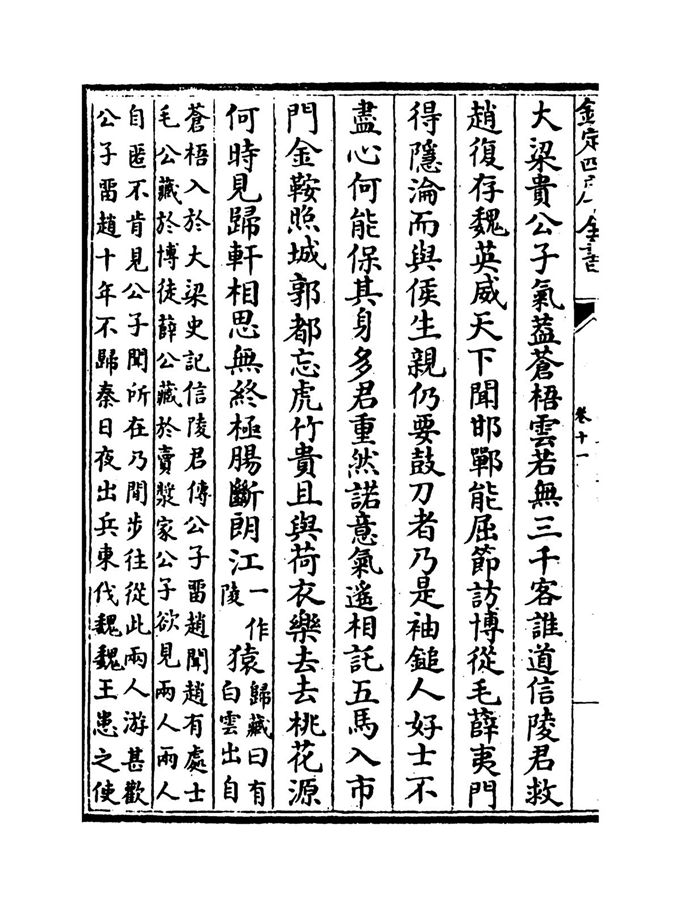 欽定四庫全書
卷十一
大梁貴公子氣葢蒼梧雲若無三千客誰道信陵君救
趙復存魏英威天下聞邯鄲能屈節訪博從毛薛夷門
得隱淪而與侯生親仍要鼓刀者乃是袖鎚人好士不
盡心何能保其身多君重然諾意氣遙相託五馬入市
門金鞍照城郭都忘虎竹貴且與荷衣樂去去桃花源
何時見歸軒相思無終極腸斷朗江一作陵猿歸藏曰有白雲出自
蒼梧入於大梁史記信陵君傳公子留趙聞趙有處士
毛公藏於博徒薛公藏於賣漿家公子欲見兩人兩人
自匿不肯見公子聞所在乃間步往從此兩人游甚歡
公子留趙十年不歸秦日夜出兵東伐魏魏王患之使